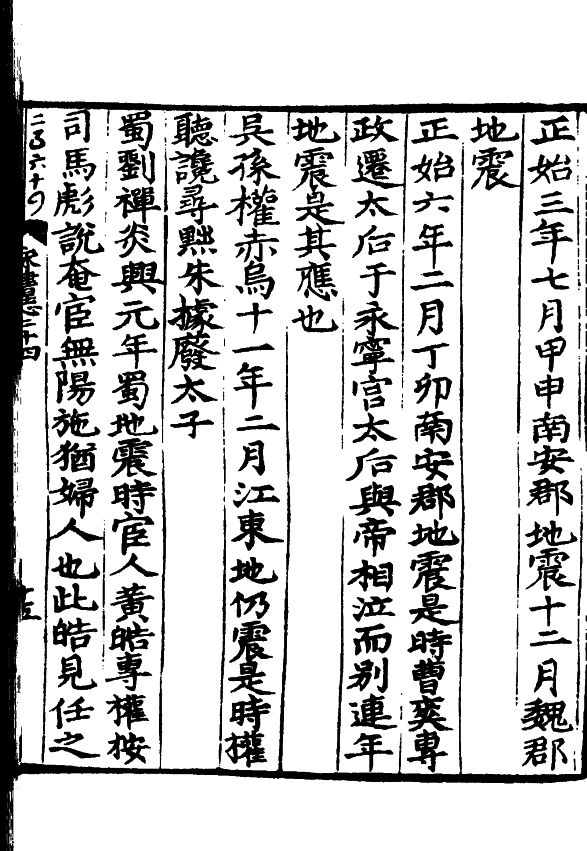 正始三年七月甲申南安郡地震十二月魏郡
地震
正始六年二月丁卯南安郡地震是時曹爽專
政遷太后于永寧宮太后與帝相泣而別連年
地震是其應也
吳孫權赤烏十一年二月江東地仍震是時權
聽讒尋黜朱據廢太子
蜀劉禪炎興元年蜀地震時宦人黃皓專權按
司馬彪說奄宦無陽施猶婦人也此皓見任之
宋書志二十四